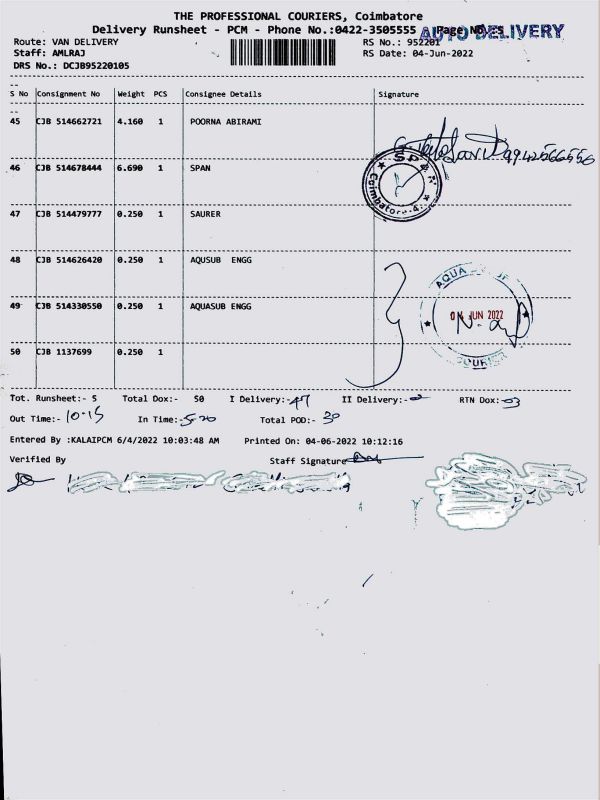 THE PROFESSIONAL COURIERS, Coimbatore
Delivery Runsheet - PCM - Phone No.:0422-3505555 Page No. 5
AUTO DELIVERY
Route: VAN DELIVERY RS No.: 952201
Staff: AMLRAJ RS Date: 04-Jun-2022
DRS No.: DCJB95220105
S No Consignment No Weight PCS Consignee Details Signature
45 CJB 514662721 4.160 1 POORNA ABIRAMI
9942566556
46 CJB 514678444 6.690 1 SPAN
SPAN
Coimbatore-4.
47 CJB 514479777 0.250 1 SAURER
48 CJB 514626420 0.250 1 AQUSUB ENGG
AQUA SUB
49 CJB 514330550 0.250 1 AQUASUB ENGG
JUN 2022
50 CJB 1137699 0.250 1
COURIER
Tot. Runsheet:- 5 Total Dox:- 50 I Delivery:- 47 II Delivery:- RTN Dox:- 03
Out Time:- 10-15 In Time:- 5-20 Total POD:- 30
Entered By :KALAIPCM 6/4/2022 10:03:48 AM Printed On: 04-06-2022 10:12:16
Verified By Staff Signature